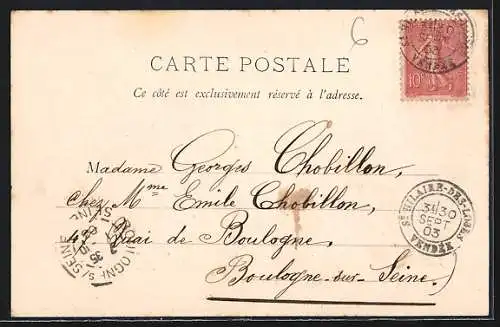 6
CARTE POSTALE
Ce côté est exclusivement réservé à l'adresse.
10
VENDÉE
Madame Georges Chobillon,
Chez Mme Emile Chobillon,
4, Quai de Boulogne,
Boulogne-sur-Seine.
ST HILAIRE-DES-LOGES
3E 30
SEPT
03
VENDÉE
BOULOGNE S/ SEINE
SEINE